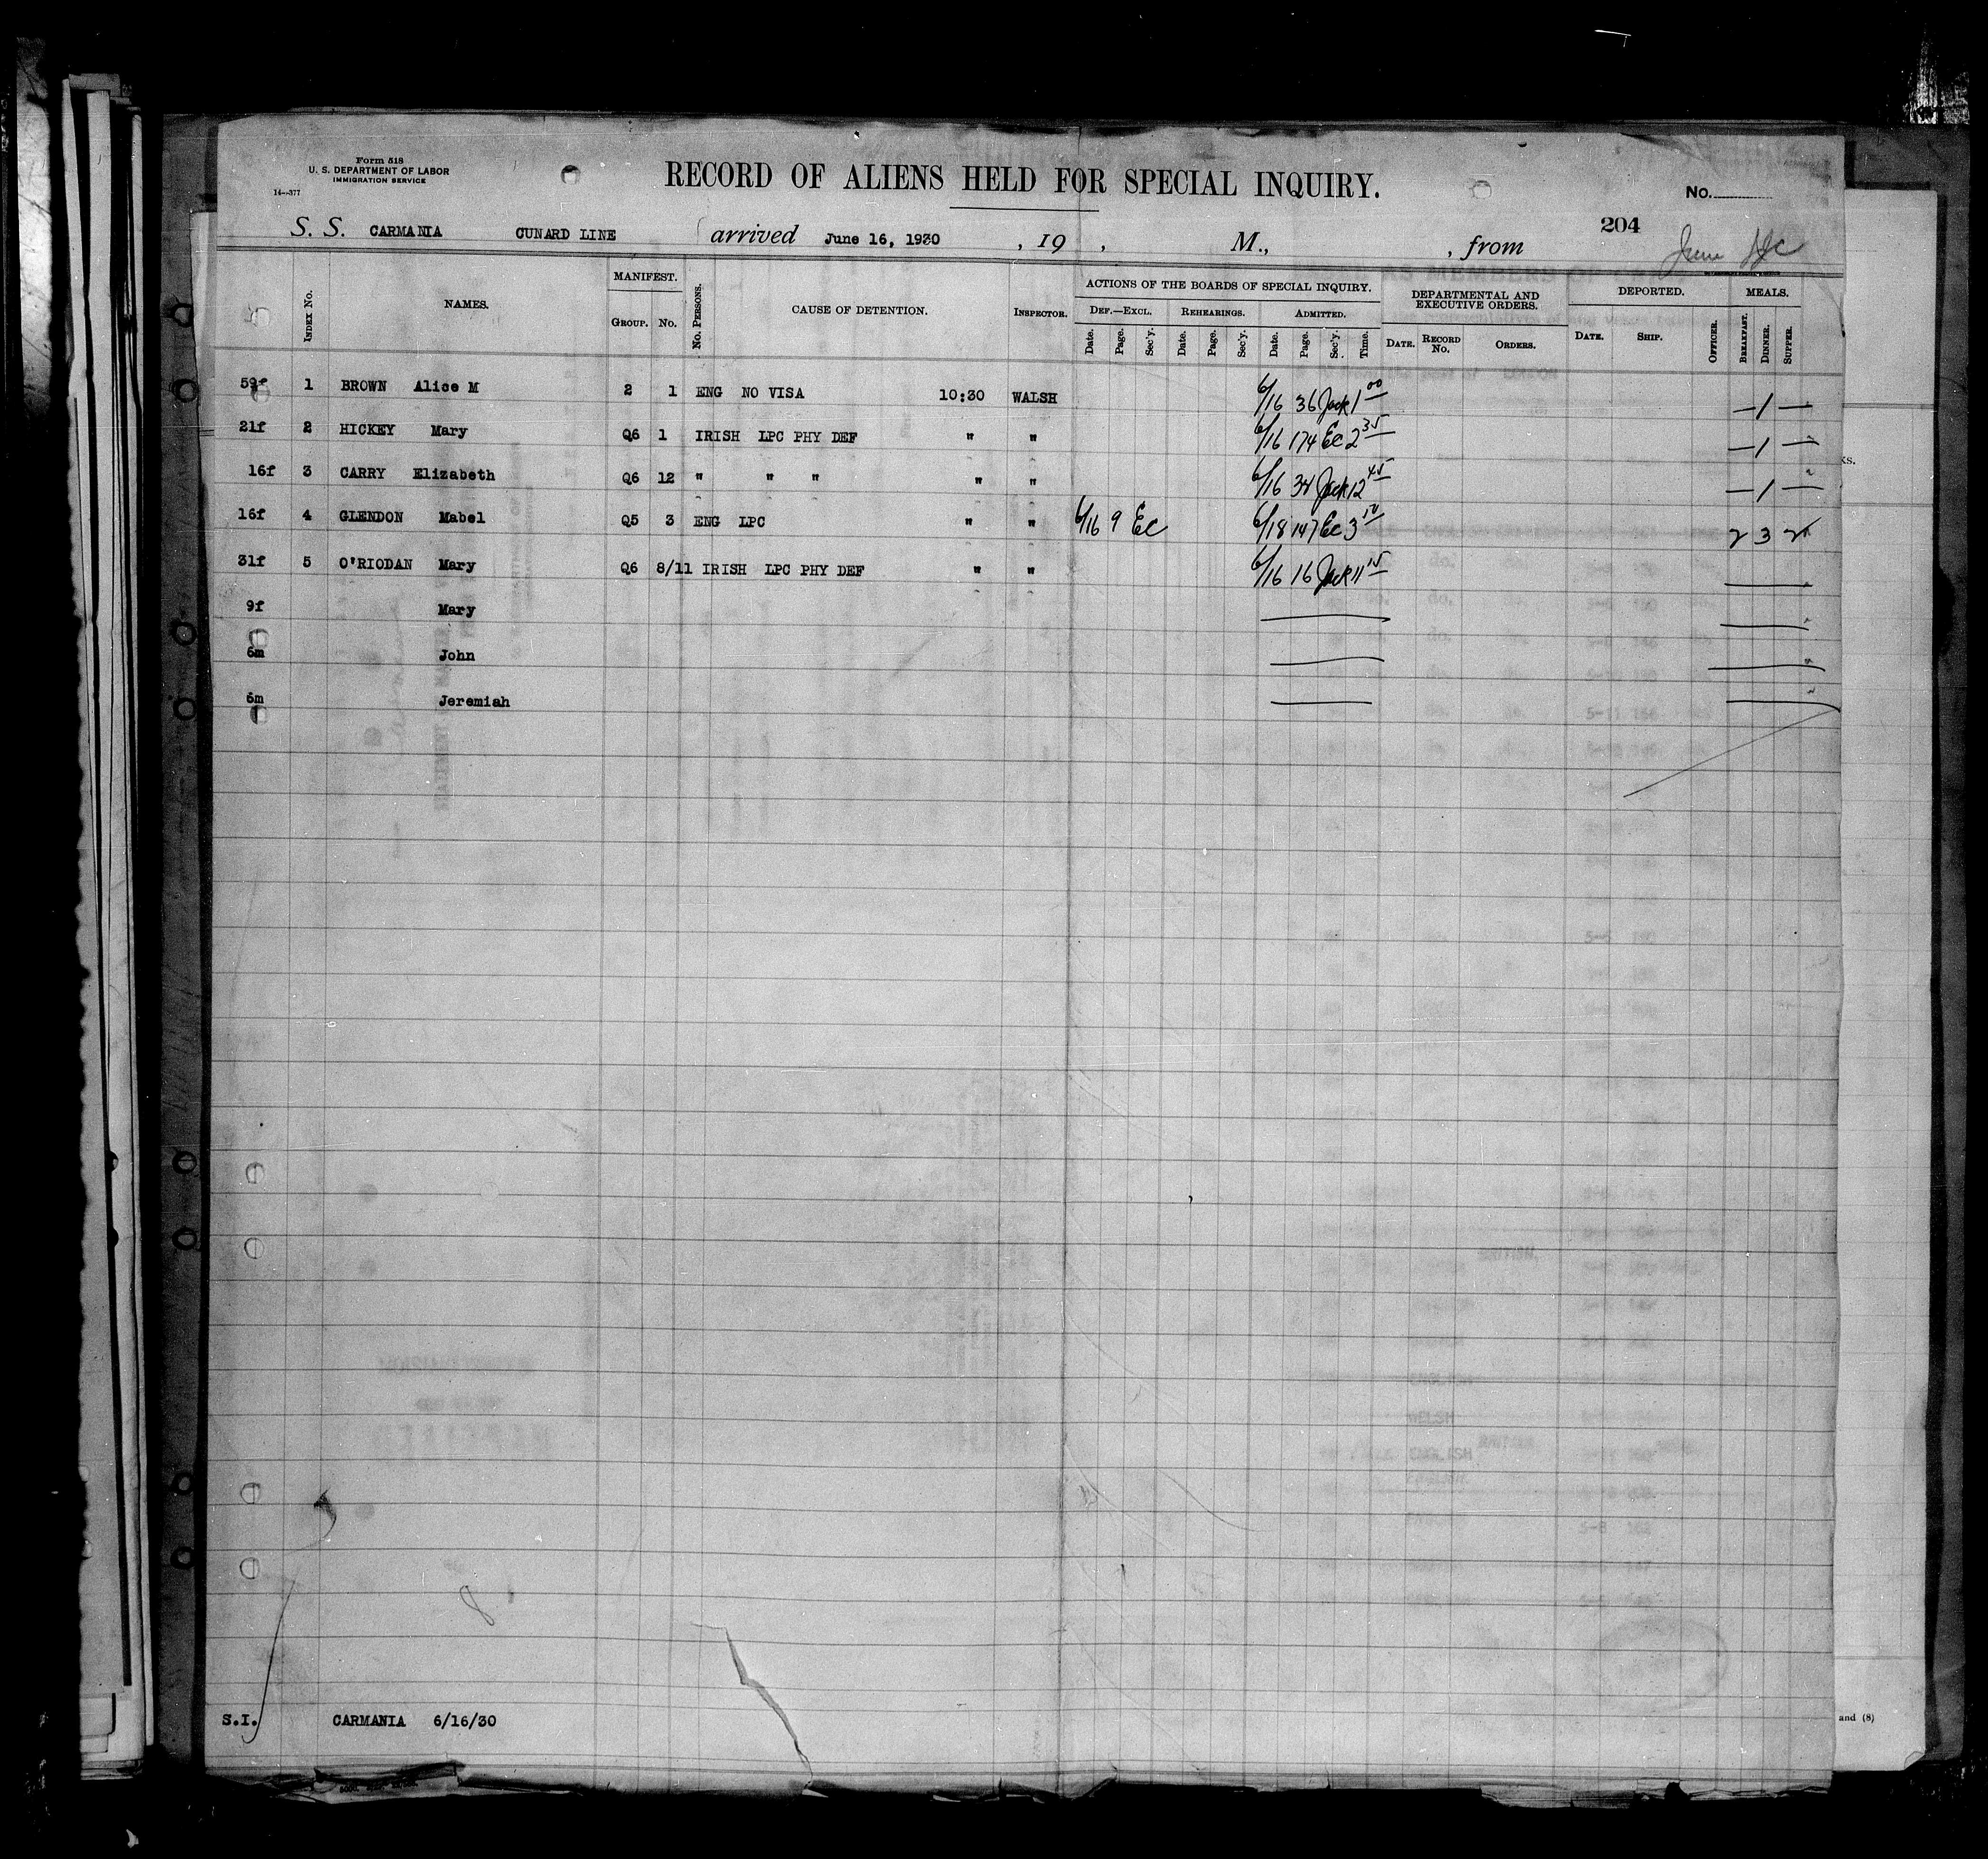 Form 518
U. S. DEPARTMENT OF LABOR
IMMIGRATION SERVICE
14—377
RECORD OF ALIENS HELD FOR SPECIAL INQUIRY.
No.
204
S. S. CARMANIA CUNARD LINE arrived June 16, 1930 , 19 , M., , from
June
Index No. NAMES. MANIFEST. Group. No. No. Persons. CAUSE OF DETENTION. Inspector. ACTIONS OF THE BOARDS OF SPECIAL INQUIRY. Def.—Excl. Date. Page. Sec'y. Rehearings. Date. Page. Sec'y. Admitted. Date. Page. Sec'y. Time. DEPARTMENTAL AND EXECUTIVE ORDERS. Date. Record No. Orders. DEPORTED. Date. Ship. Officer. MEALS. Breakfast. Dinner. Supper.
59f 1 BROWN Alice M 2 1 ENG NO VISA 10:30 WALSH 6/16 36 Jack 1 00 — 1 —
21f 2 HICKEY Mary Q6 1 IRISH LPC PHY DEF " " 6/16 174 Ec 2 35 — 1 —
16f 3 CARRY Elizabeth Q6 12 " " " " " 6/16 34 Jack 12 45 — 1 —
16f 4 GLENDON Mabel Q5 3 ENG LPC " " 6/16 9 Ec 6/18 147 Ec 3 2 3 2
31f 5 O'RIODAN Mary Q6 8/11 IRISH LPC PHY DEF " " 6/16 16 Jack 11 15
9f Mary
6m John
6m Jeremiah
8
S.I. CARMANIA 6/16/30
ks.
and (8)